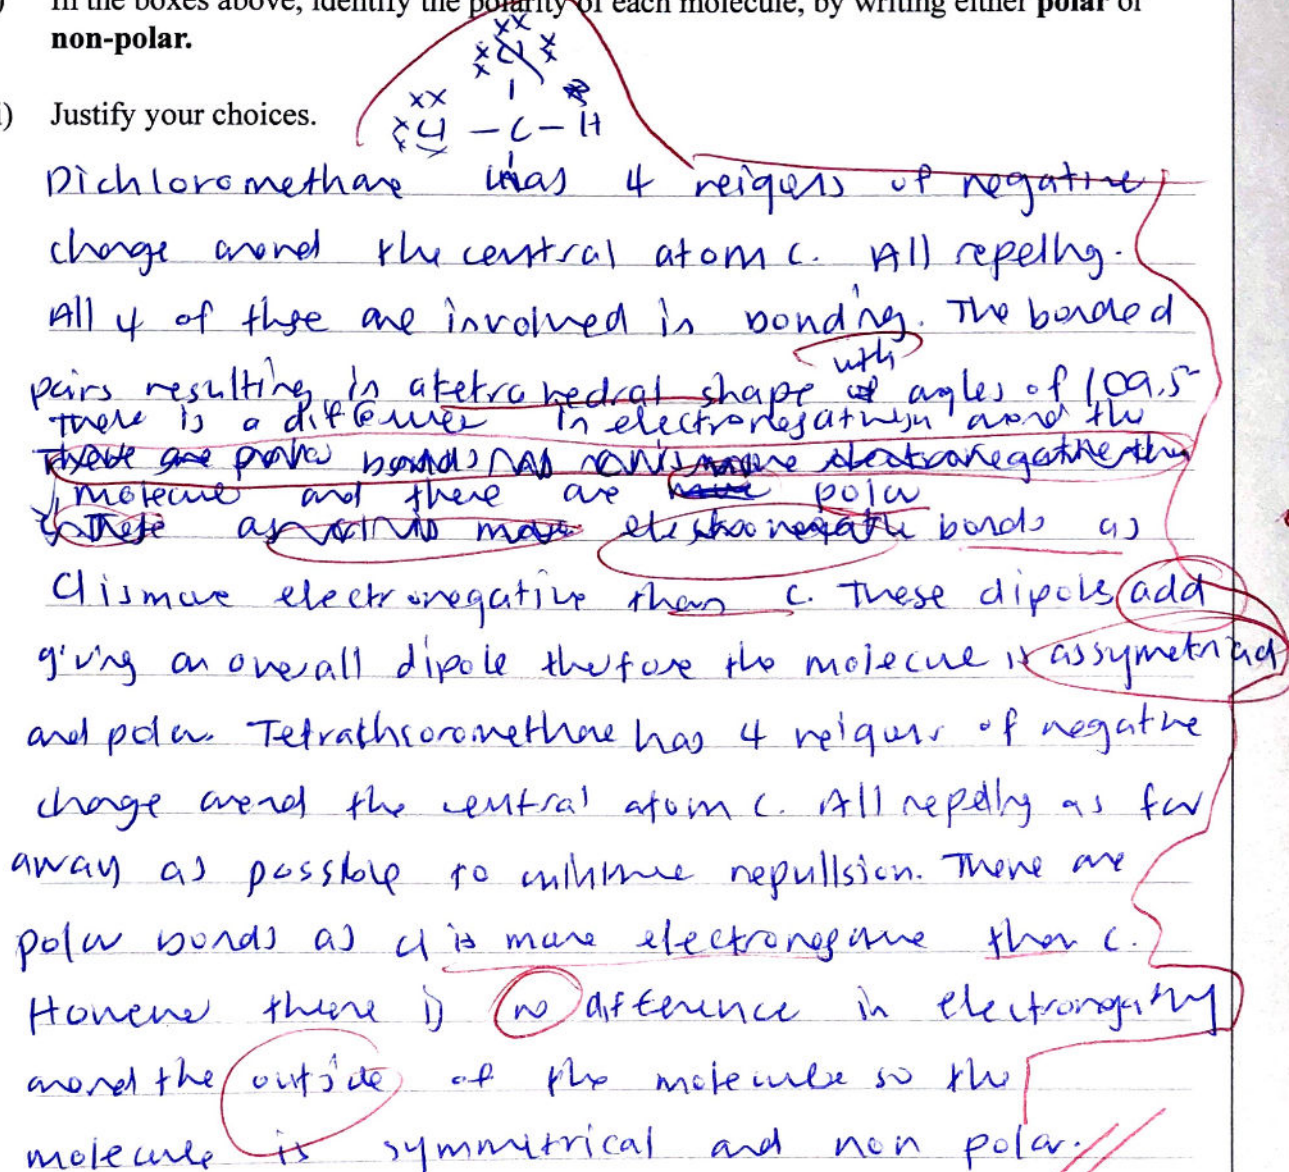 In the boxes above, identify the polarity of each molecule, by writing either polar or
non-polar.
Cl
Justify your choices.
Cl - C - H
Dichloromethane has 4 reigons of negative
charge around the central atom C. All repelling.
All 4 of these are involved in bonding. The bonded
pairs resulting in a tetrahedral shape with angles of 109.5
There is a difference in electronegativity around the
molecule and there are polar
bonds as
Cl is more electronegative than C. These dipoles add
giving an overall dipole therefore the molecule is assymetrical
and polar. Tetrachloromethane has 4 reigons of negative
charge around the central atom C. All repelling as far
away as possible to minimise repullsion. There are
polar bonds as Cl is more electronegative than C.
However there is no difference in electronegativity
around the outside of the molecule so the
molecule is symmetrical and non polar.